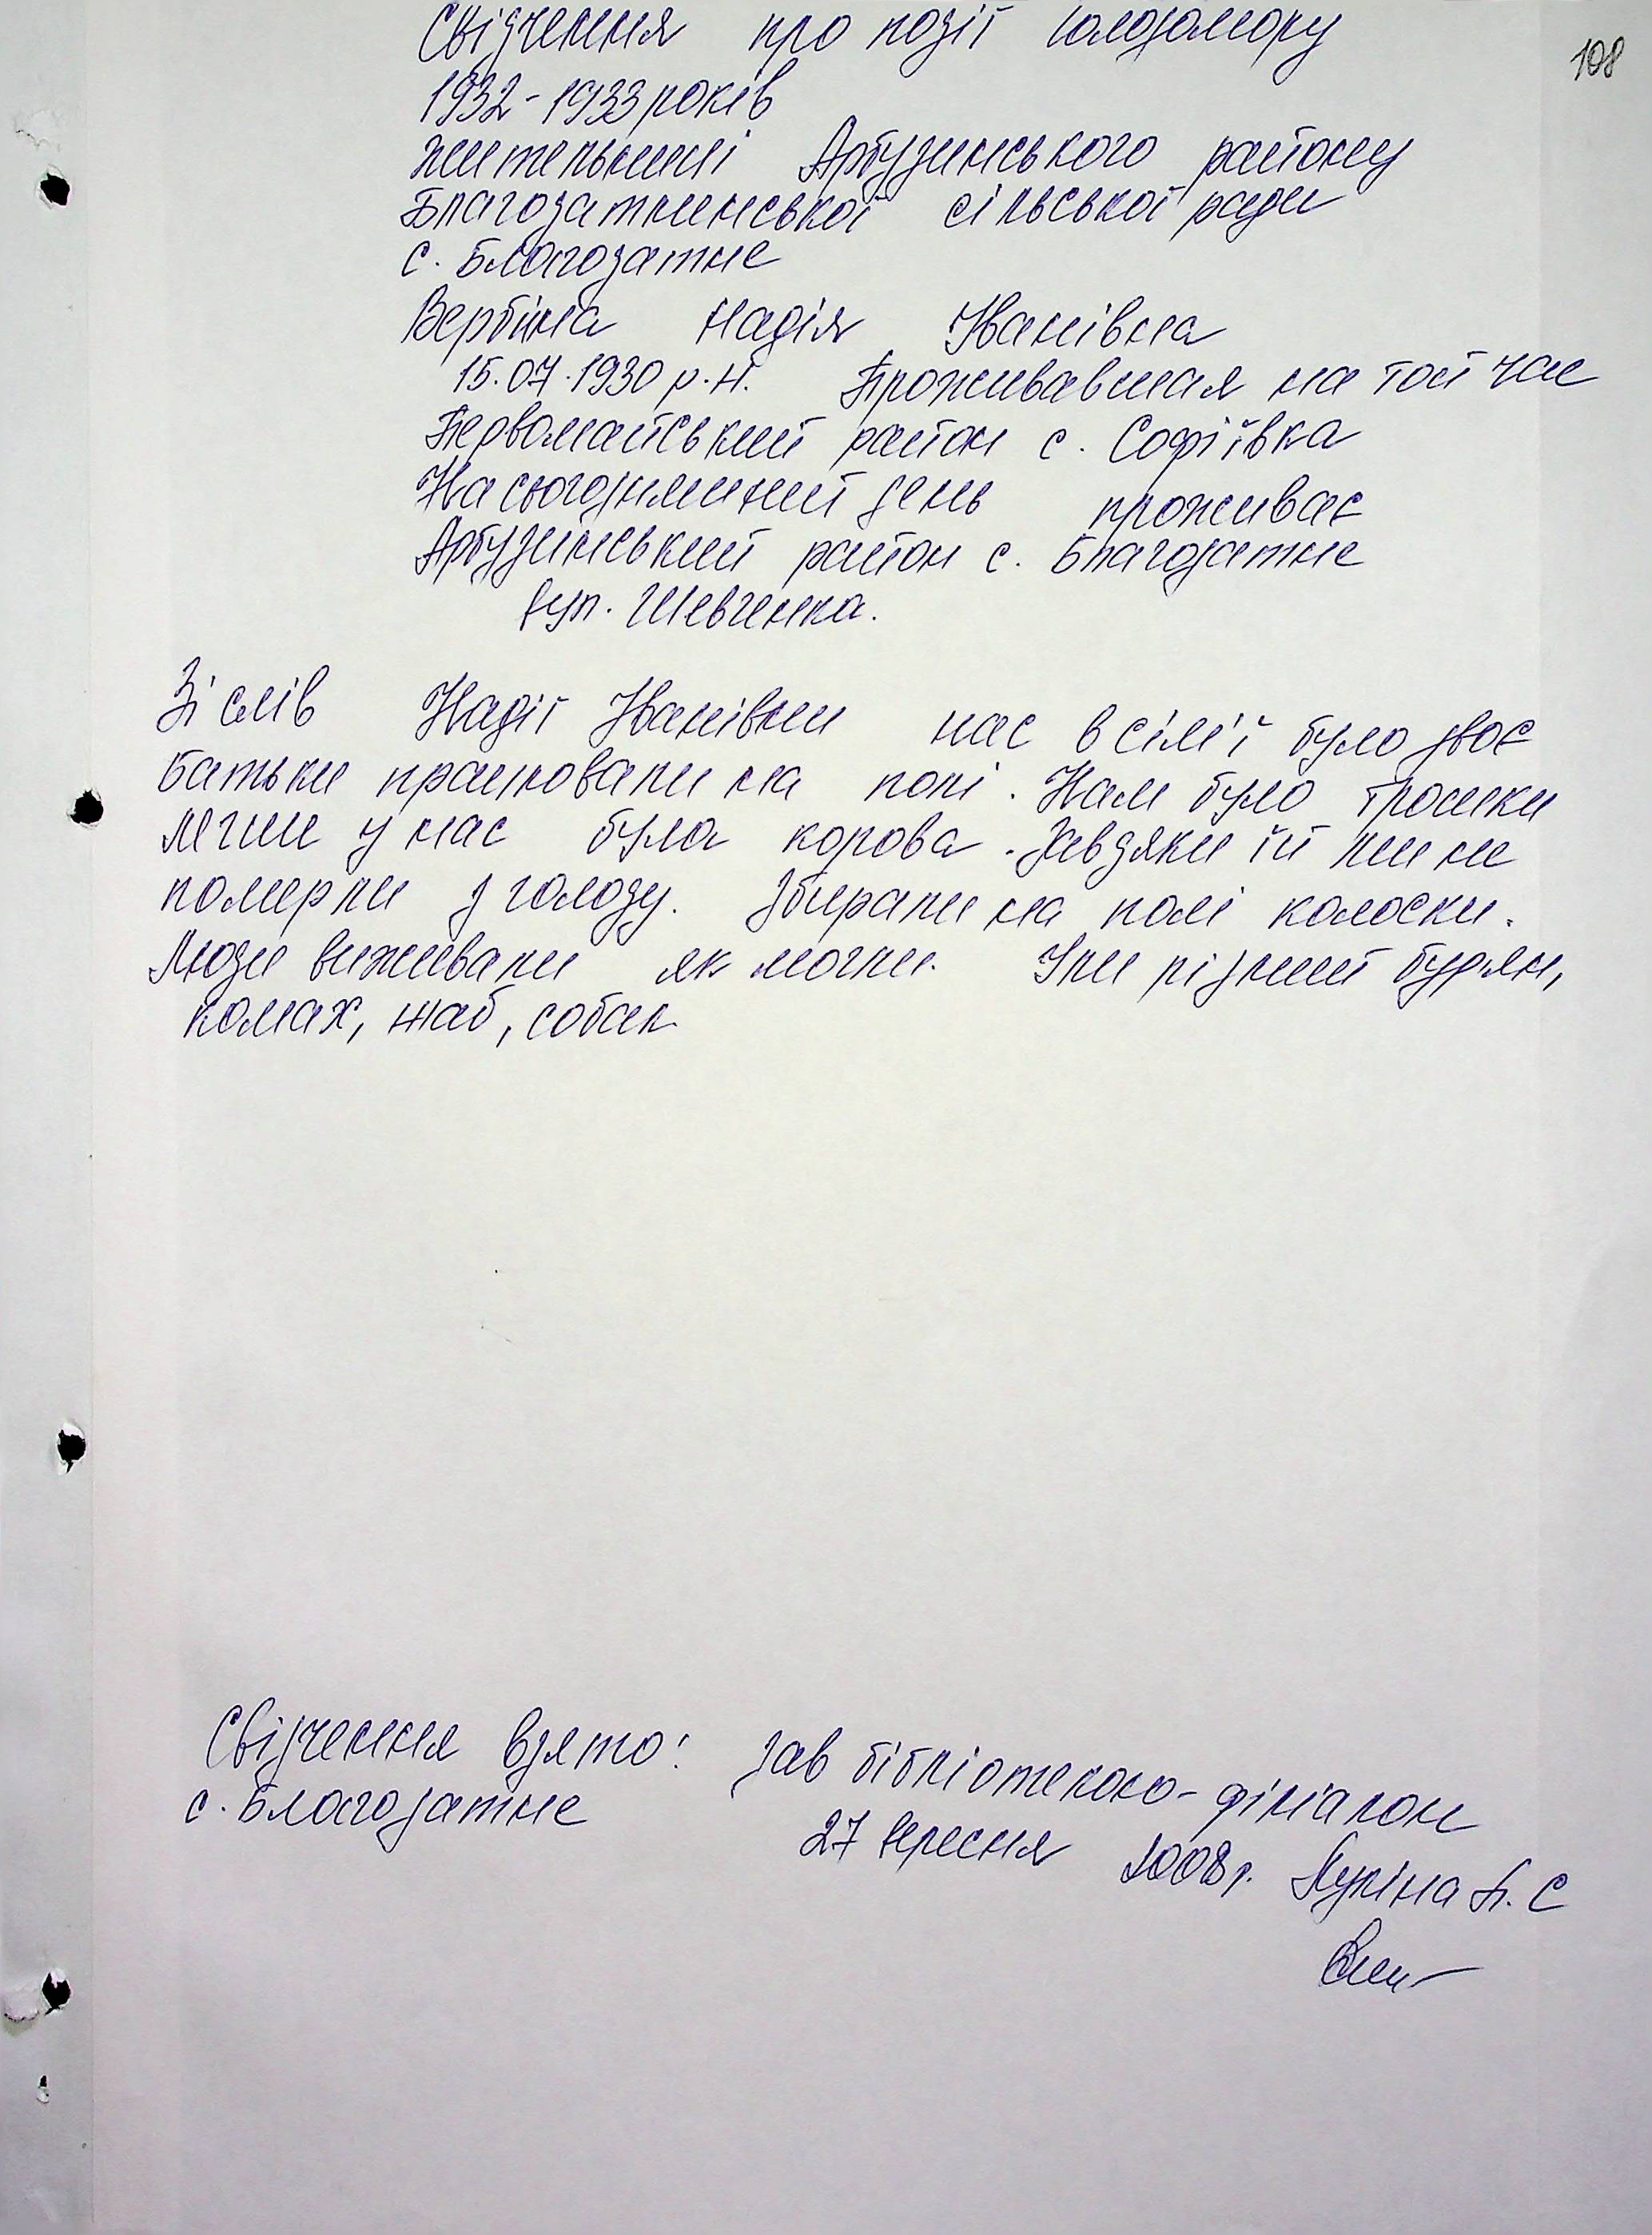 108
Свідчення про події голодомору
1932-1933 років
жительниці Арбузинського району
Благодатненської сільської ради
с. Благодатне
Вербіна Надія Іванівна
15.07.1930 р.н. Проживавшая на той час
Первомайський район с. Софіївка
На сьогоднішній день проживає
Арбузинський район с. Благодатне
вул. Шевченка.
Зі слів Надії Іванівни нас в сім'ї було двоє
батьки працювали на полі. Нам було трошки
легше у нас була корова. Завдяки їй ми не
померли з голоду. Збирали на полі колоски.
Люди виживали як могли. Їли різний бур'ян,
комах, жаб, собак
Свідчення взято: Зав бібліотекою-філіалом
с. Благодатне
27 вересня 2008р. Луніна Л. С